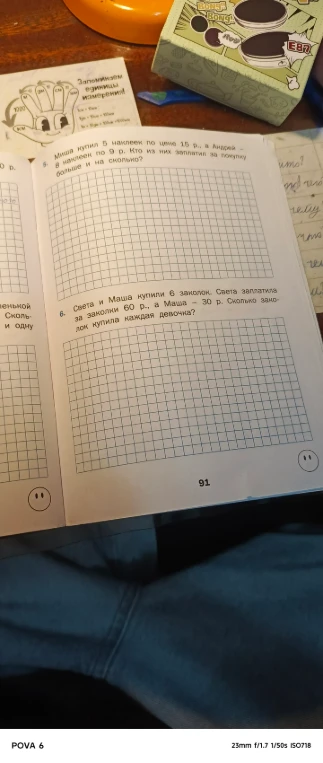 Запоминаем
единицы
измерения!
5. Миша купил 5 наклеек по цене 15 р., а Андрей –
8 наклеек по 9 р. Кто из них заплатил за покупку
больше и на сколько?
0 р.
6. Света и Маша купили 6 заколок. Света заплатила
за заколки 60 р., а Маша – 30 р. Сколько зако-
лок купила каждая девочка?
Сколь-
и одну
91
POVA 6
23mm f/1.7 1/50s ISO718